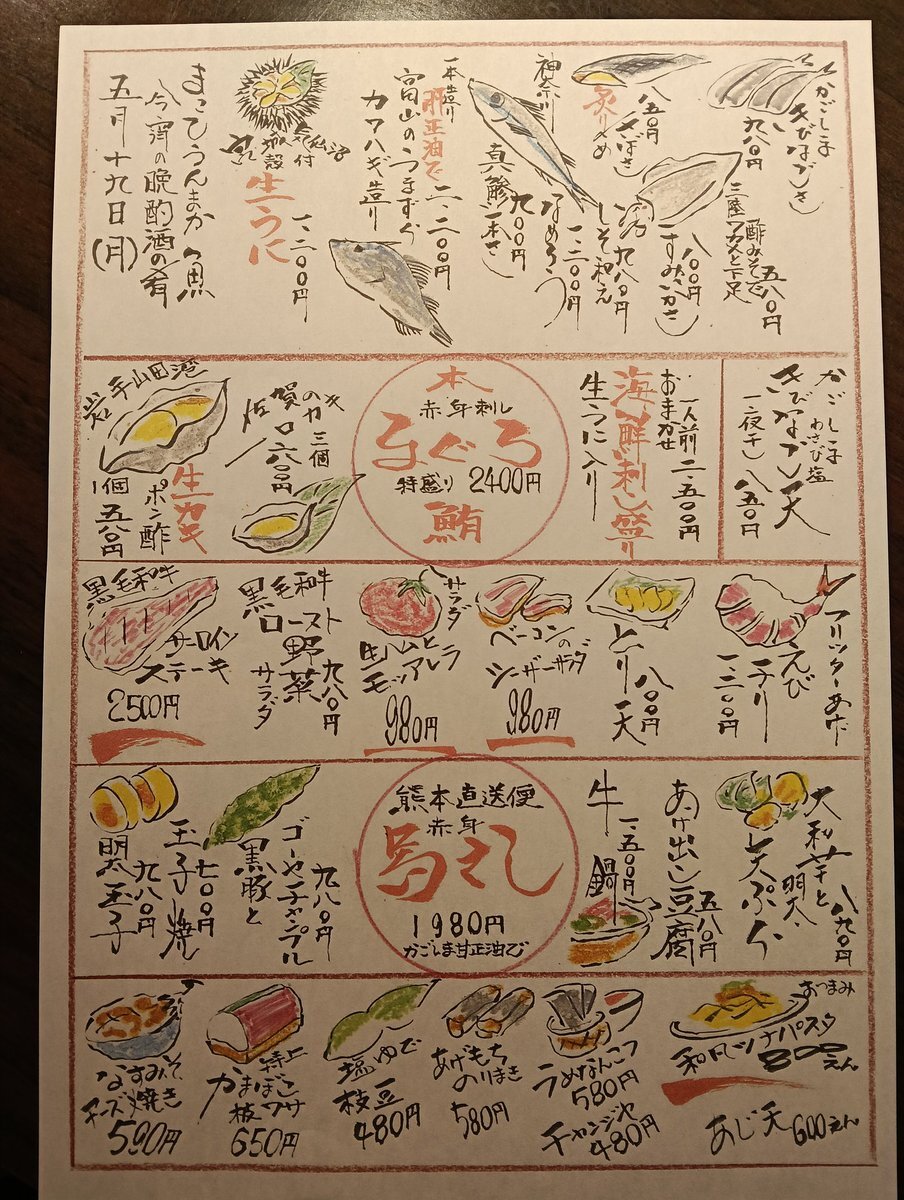 かごしま
きびなごさし
九八〇円
酢みそで
五八〇円
三陸ワカメと下足
炙りしめ
さばさし
八五〇円
すみいかさし
八〇〇円
しそ和え
九八〇円
神奈川
真鯵一本さし
九〇〇円
なめろう
一、二〇〇円
一本造り
肝正油で
二、二〇〇円
富山のうまずら
カワハギ造り
殻付
生うに
一、二〇〇円
まっことうんまか魚
今宵の晩酌酒の肴
五月十九日(月)
かごしま
わさび塩
きびなご天
一夜干し 八五〇円
海鮮刺し盛り
一人前 二、五〇〇円
おまかせ
生うに入り
本
赤身刺し
まぐろ
特盛り 2400円
鮪
佐賀のカキ
三個
六八〇円
岩手山田湾
生カキ
ポン酢
1個 五八〇円
フリッターあげ
えび
チリ
一、三〇〇円
とり天
八〇〇円
ベーコンの
シーザーサラダ
980円
サラダ
生ハムと
モッツアレラ
980円
黒毛和牛
ロースト野菜
サラダ
九八〇円
黒毛和牛
サーロイン
ステーキ
2500円
大和芋と
明太
しそ天ぷら
八九〇円
あげ出し豆腐
五八〇円
牛鍋
一、五〇〇円
熊本直送便
赤身
馬さし
1980円
かごしま甘正油で
ゴーヤチャンプル
黒豚と
九八〇円
玉子焼
七〇〇円
明太玉子
九八〇円
おつまみ
和風ツナパスタ
800えん
あじ天 600えん
うめなんこつ
580円
チャンジャ
480円
あげもち
のりまき
580円
塩ゆで
枝豆
480円
特上
かまぼこ
板ワサ
650円
なすみそ
チーズ焼き
590円